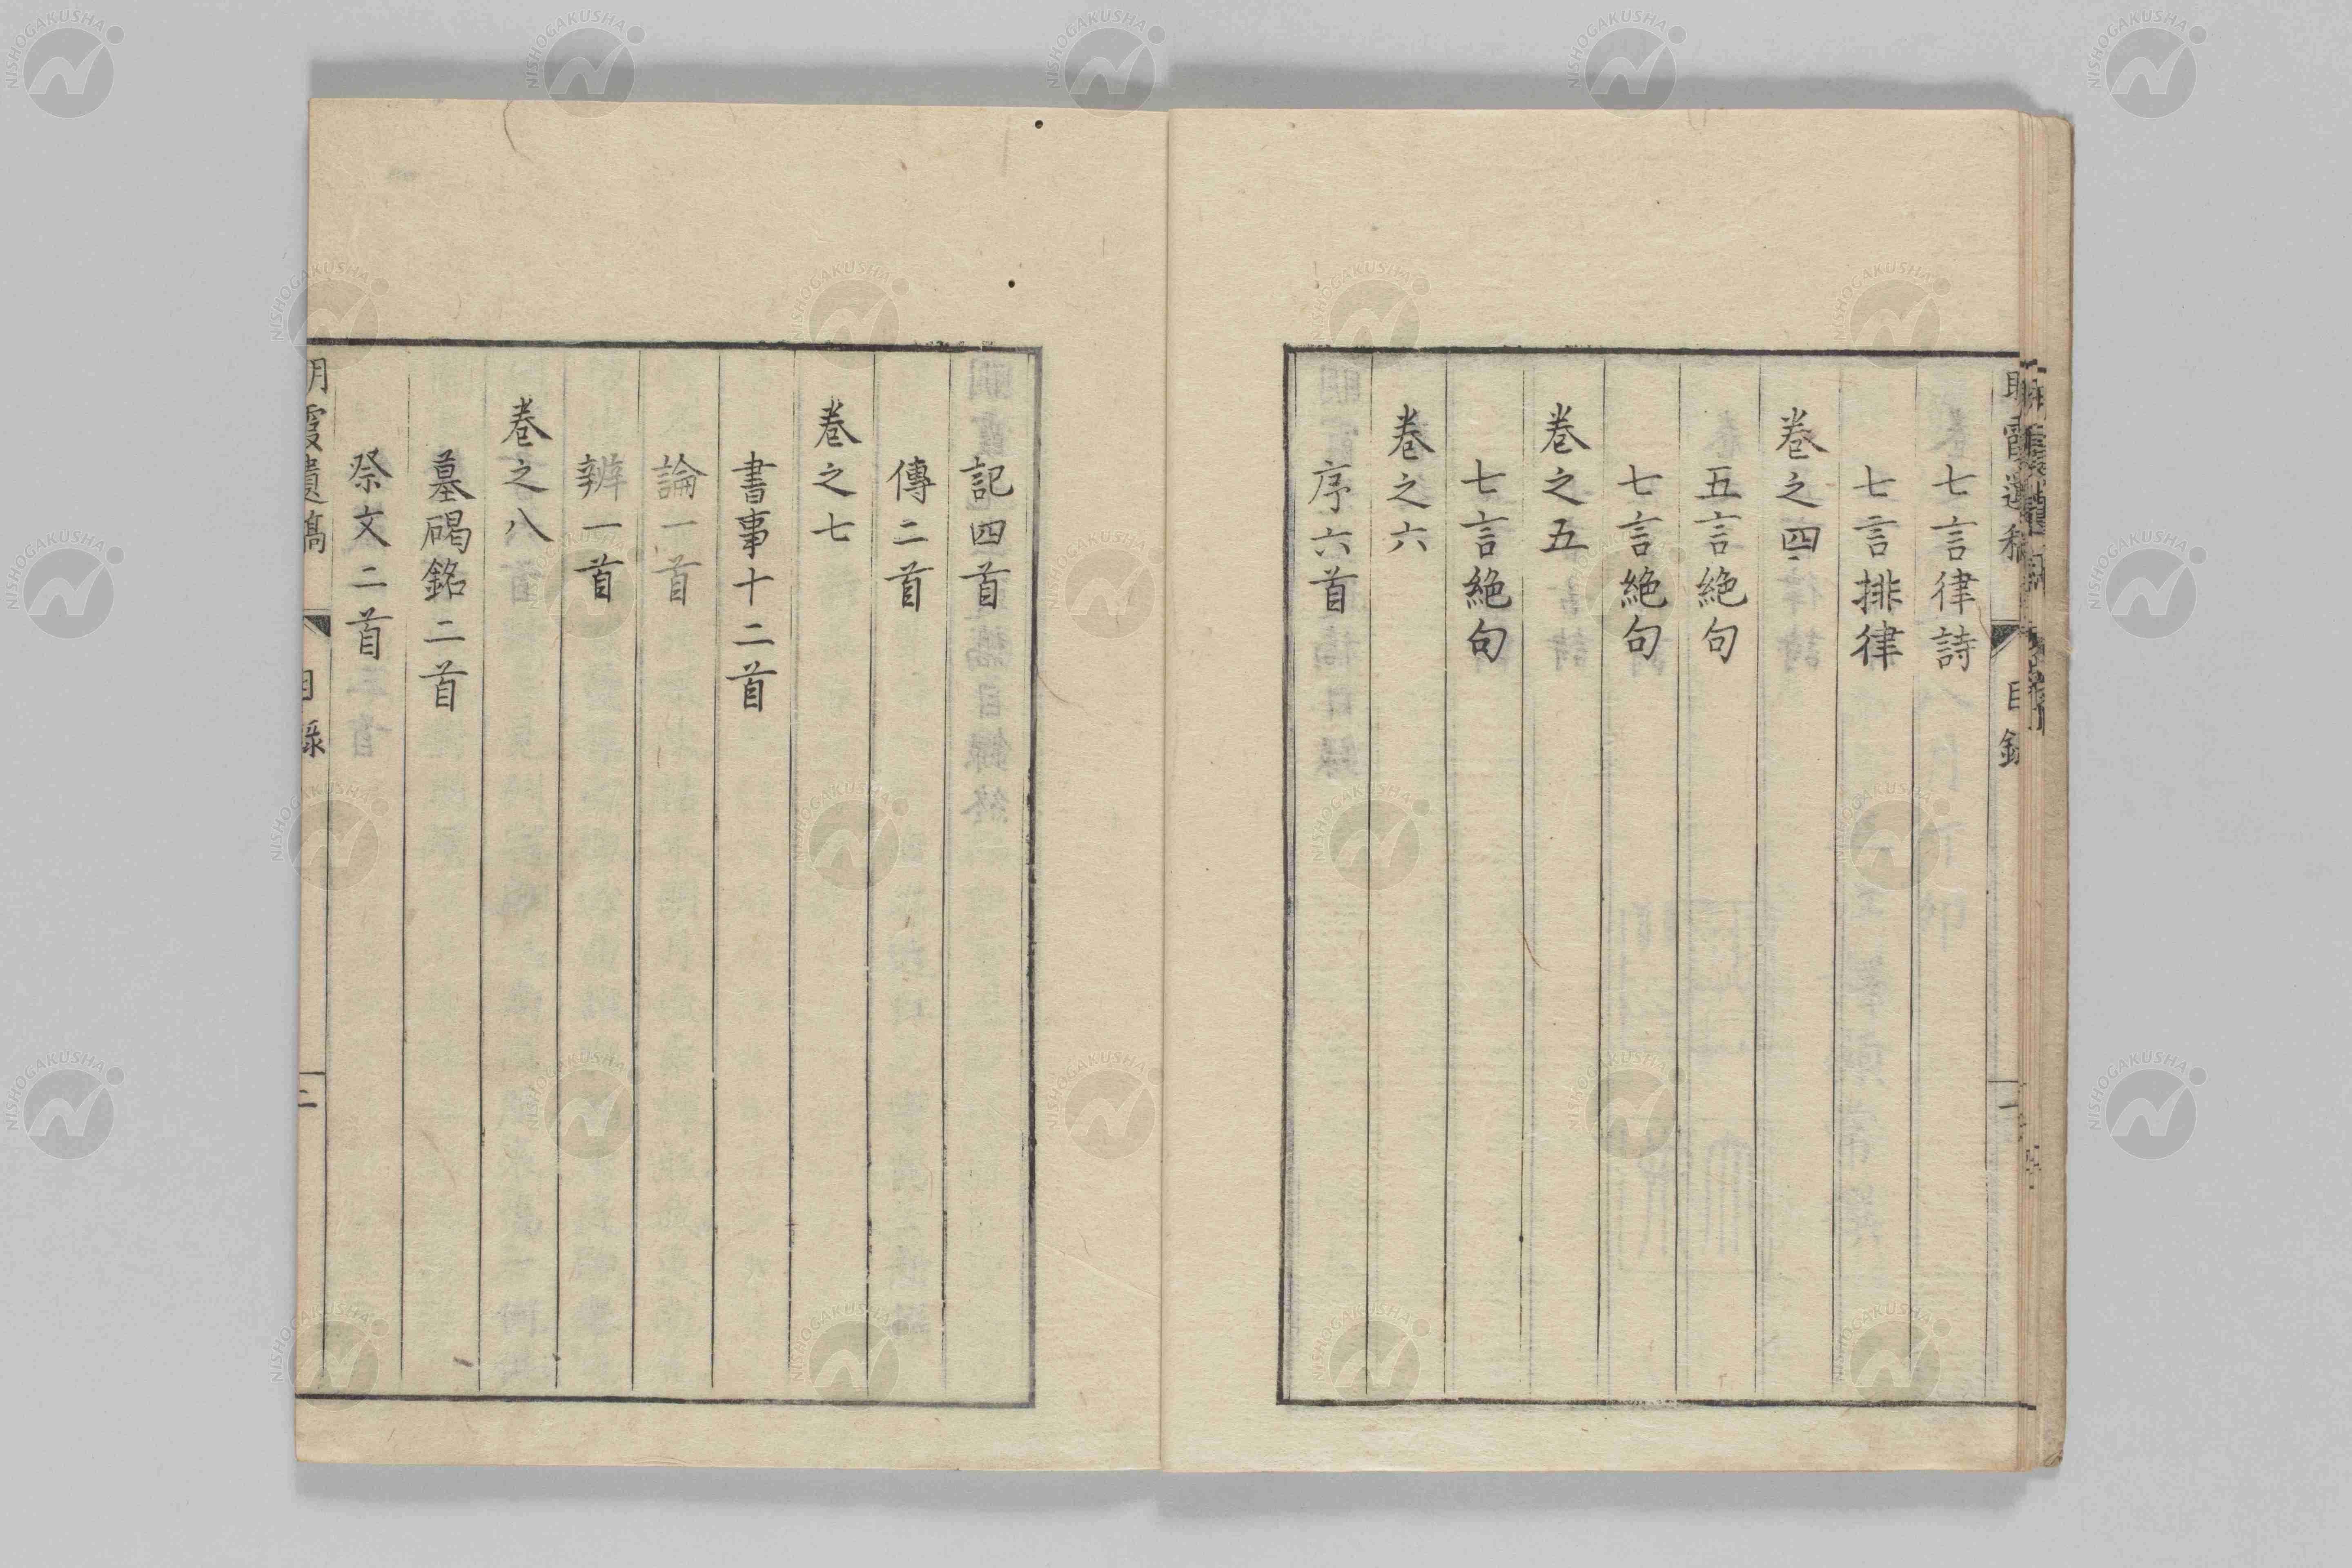 七言律詩
七言排律
卷之四
五言絶句
七言絶句
卷之五
七言絶句
卷之六
序六首
記四首
傳二首
卷之七
書事十二首
論一首
辨一首
卷之八
墓碣銘二首
祭文二首
明霞遺稿
目錄
二
NISHOGAKUSHA